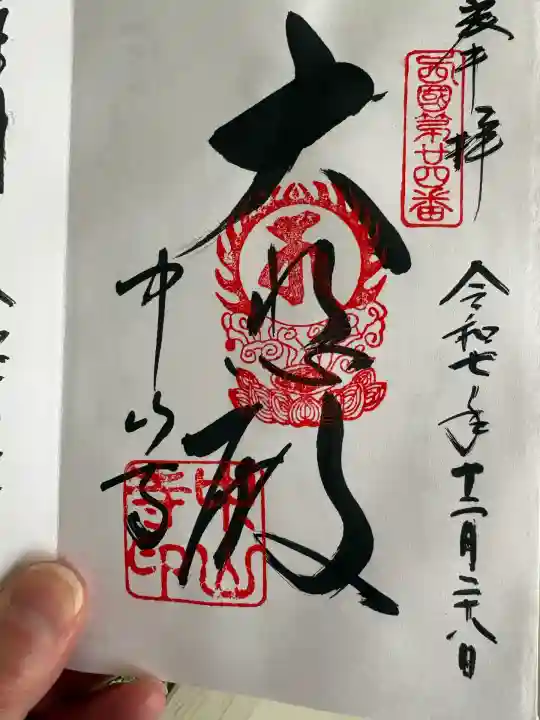 奉拝
西國第廿四番
令和七年十二月二十八日
大悲殿
中山寺
中山寺印